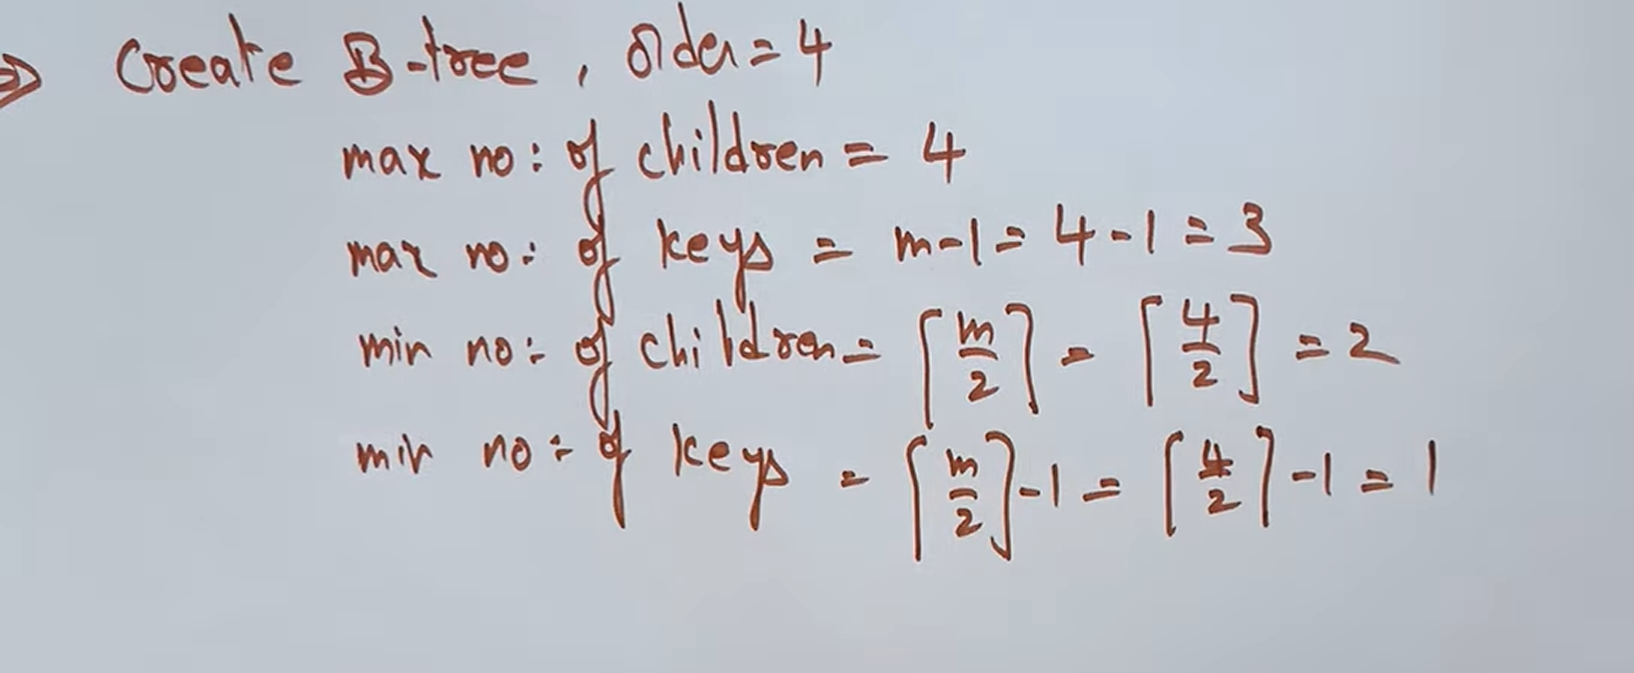 ⇒ Create B-tree, order = 4
max no: of children = 4
max no: of keys = m-1 = 4-1 = 3
min no: of children = ⌈m/2⌉ = ⌈4/2⌉ = 2
min no: of keys = ⌈m/2⌉-1 = ⌈4/2⌉-1 = 1